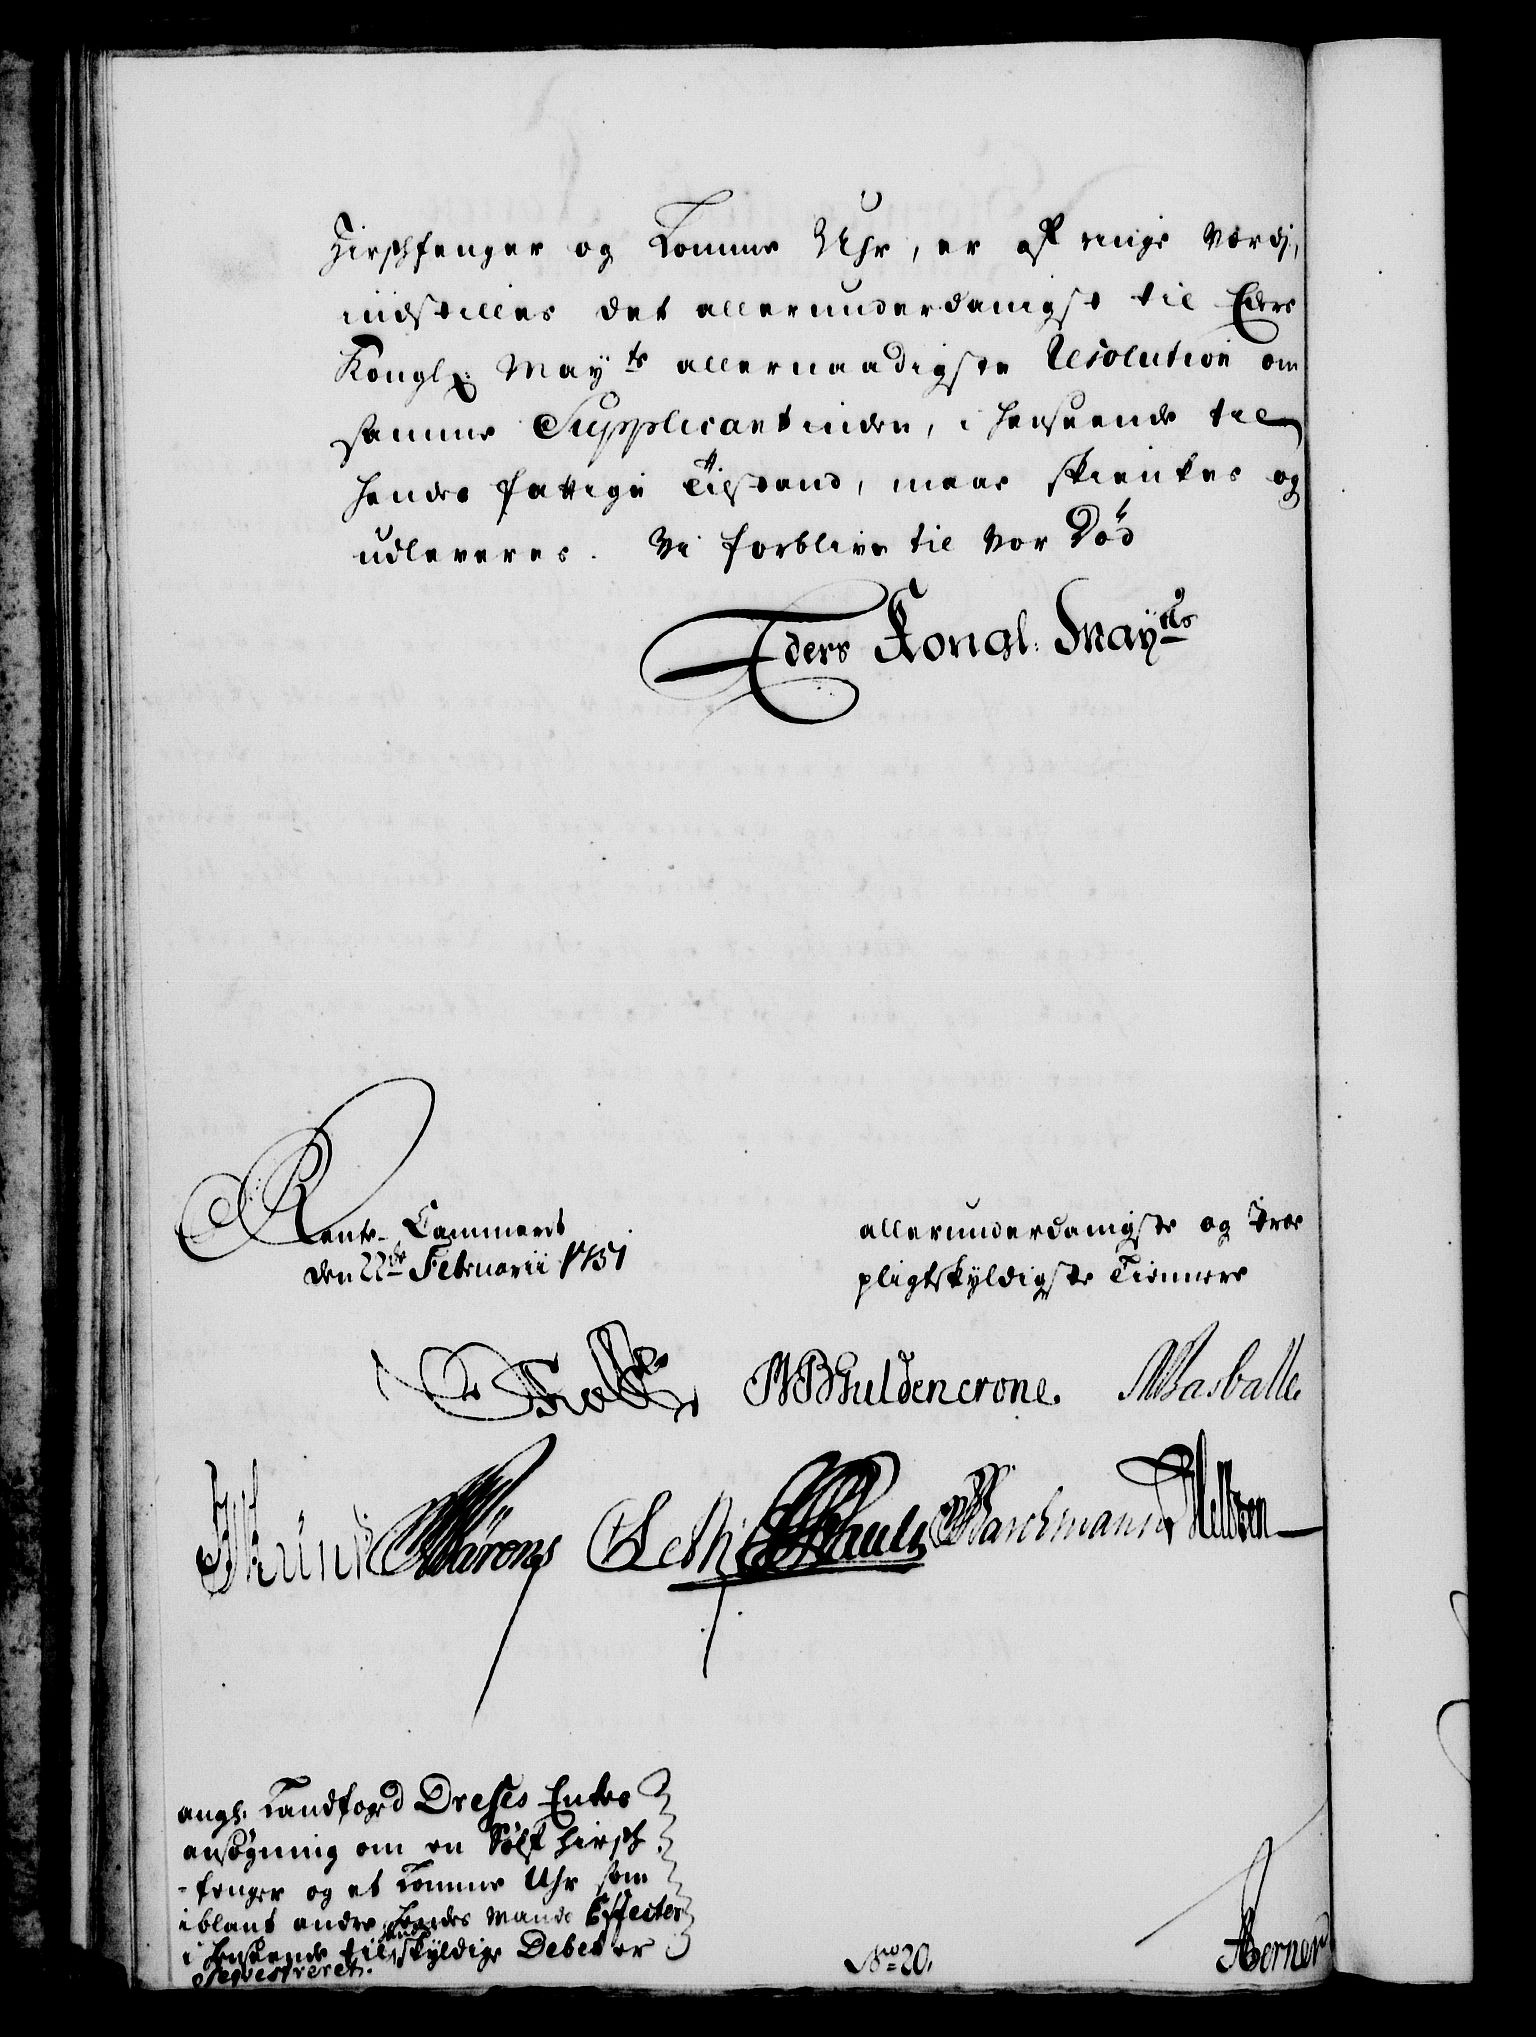 Hirschfenger og Lomme Uhr, er af ringe værdi,
indstilles det allerunderdanigst til Eders
Kongl: May.ts allernaadigste Resolution om
samme Supplicantinden, i henseende til
hendes fattige Tilstand, maae skienkes og
udleveres. Vi forblive til vor Død
Eders Kongl: May.tts
Rente-Cammeret
den 22de Februarii 1731
allerunderdanigste og troe
pligtskyldigste Tienere
Guldencrone. Basballe
Paulj Barchmann
ang: Landfoged Dreses Enkes
ansøgning om en Sølf Hirsch
-fenger og et Lomme Uhr som
iblant andre hendes Mands Effecter
i henseende til skyldige Debet er
seqvestreret.
No 20.